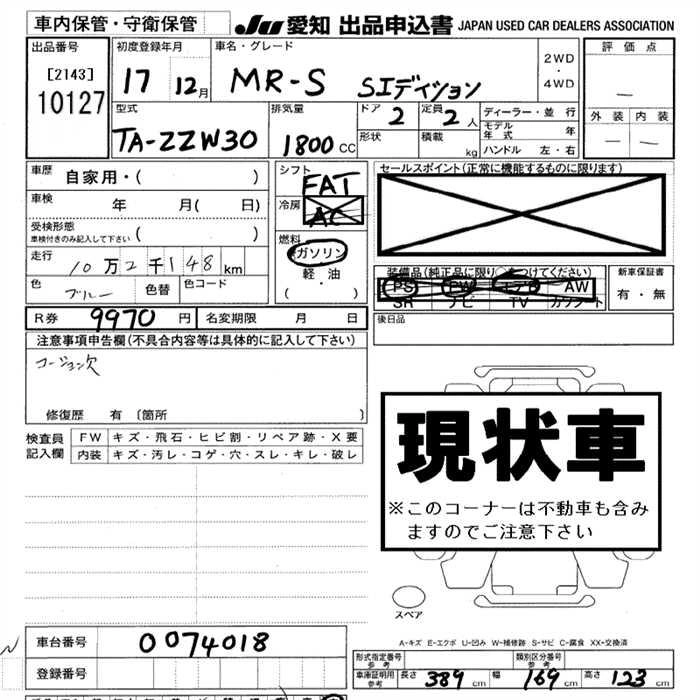 車内保管・守衛保管
JU 愛知 出品申込書 JAPAN USED CAR DEALERS ASSOCIATION
出品番号
[2143]
10127
初度登録年月
17 12月
車名・グレード
MR-S Sエディション
2WD
・
4WD
評価点
—
外装 内装
— —
型式
TA-ZZW30
排気量
1800 CC
ドア 2
定員 2 人
形状
積載 kg
ディーラー・並行
モデル年式 年
ハンドル 左・右
車歴 自家用・( )
車検 年 月( 日)
受検形態
車検付きのみ記入して下さい ( )
走行 10万2千148km
色 ブルー 色替 色コード
シフト
FAT
冷房
AC
燃料
ガソリン
軽・油
( )
セールスポイント(正常に機能するものに限ります)
装備品(純正品に限り○をつけてください)
PS PW エアB AW
SR ナビ TV カワシート
新車保証書
有・無
R券 9970 円 名変期限 月 日
後日品
注意事項申告欄(不具合内容等は具体的に記入して下さい)
コーション欠
修復歴 有 〔箇所 〕
検査員記入欄
FW キズ・飛石・ヒビ割・リペア跡・X要
内装 キズ・汚レ・コゲ・穴・スレ・キレ・破レ
現状車
※このコーナーは不動車も含み
ますのでご注意下さい
スペア
A-キズ E-エクボ U-凹み W-補修跡 S-サビ C-腐食 XX-交換済
車台番号 0074018
登録番号
形式指定番号
参考
類別区分番号
参考
車庫証明用
参考
長さ 389 cm 幅 169 cm 高さ 123 cm